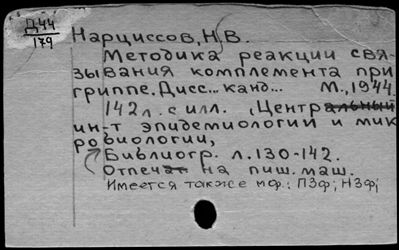 Д44
179
Нарциссов, Н.В.
Методика реакции свя-
зывания комплемента при
гриппе. Дисс... канд... М., 1944.
142 л. с илл. (Центральный
ин-т эпидемиологии и мик
робиологии,
Библиогр. л. 130-142.
Отпечат на пиш. маш.
Имеется также мф.: ПЗф; НЗф;